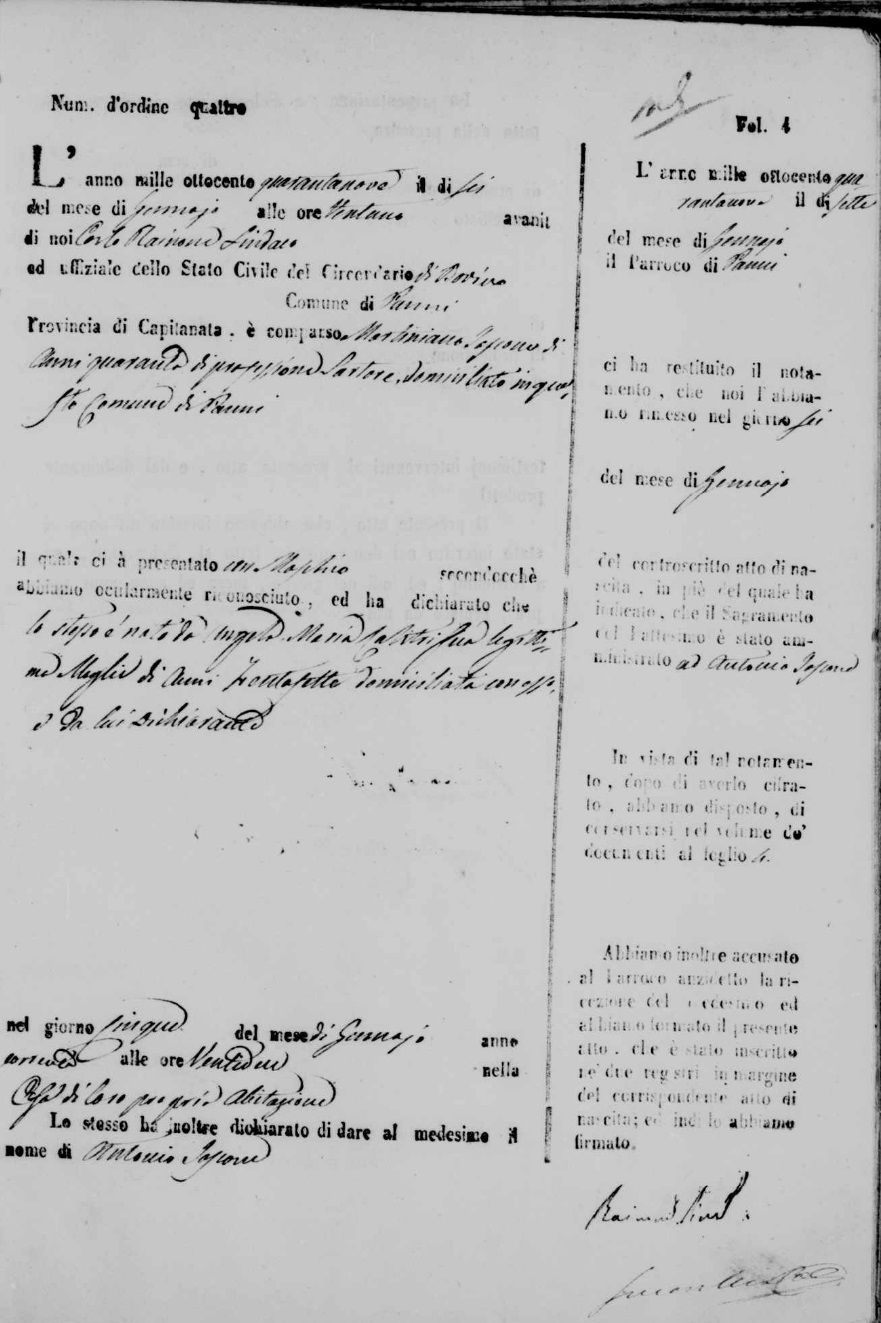 Num. d'ordine quattro
L' anno mille ottocento quarantanove il di sei
del mese di Gennajo alle ore ventuno avanti
di noi Carlo Rainone Sindaco
ed uffiziale dello Stato Civile del Circondario di Bovino
Comune di Panni
Provincia di Capitanata, è comparso Martiniano Sapone di
Anni quaranta di professione Sartore, domiciliato in que=
sto Comune di Panni
il quale ci à presentato un Maschio secondocchè
abbiamo ocularmente riconosciuto, ed ha dichiarato che
lo stesso è nato da Angela Maria sua legitti=
ma Moglie di Anni Trentasette domiciliata con esso,
e da lui Dichiarante
nel giorno cinque del mese di Gennajo anno
corrente alle ore Ventidue nella
Casa di loro propria Abitazione
Lo stesso ha inoltre dichiarato di dare al medesimo il
nome di Antonio Sapone
Fol. 4
L' anno mille ottocento qua
rantanove il dì sette
del mese di Gennajo
il Parroco di Panni
ci ha restituito il nota-
mento, che noi l'abbia-
mo rimesso nel giorno sei
del mese di Gennajo
del controscritto atto di na-
scita, in piè del quale ha
indicato, che il Sagramento
del Battesimo è stato am-
ministrato ad Antonio Sapone
In vista di tal notamen-
to, dopo di averlo cifra-
to, abbiamo disposto, di
conservarsi nel volume de'
documenti al foglio 4.
Abbiamo inoltre accusato
al Parroco anzidetto la ri-
cezione del medesimo ed
abbiamo formato il presente
atto, che è stato inscritto
ne' due registri in margine
del corrispondente atto di
nascita; ed indi lo abbiamo
firmato.